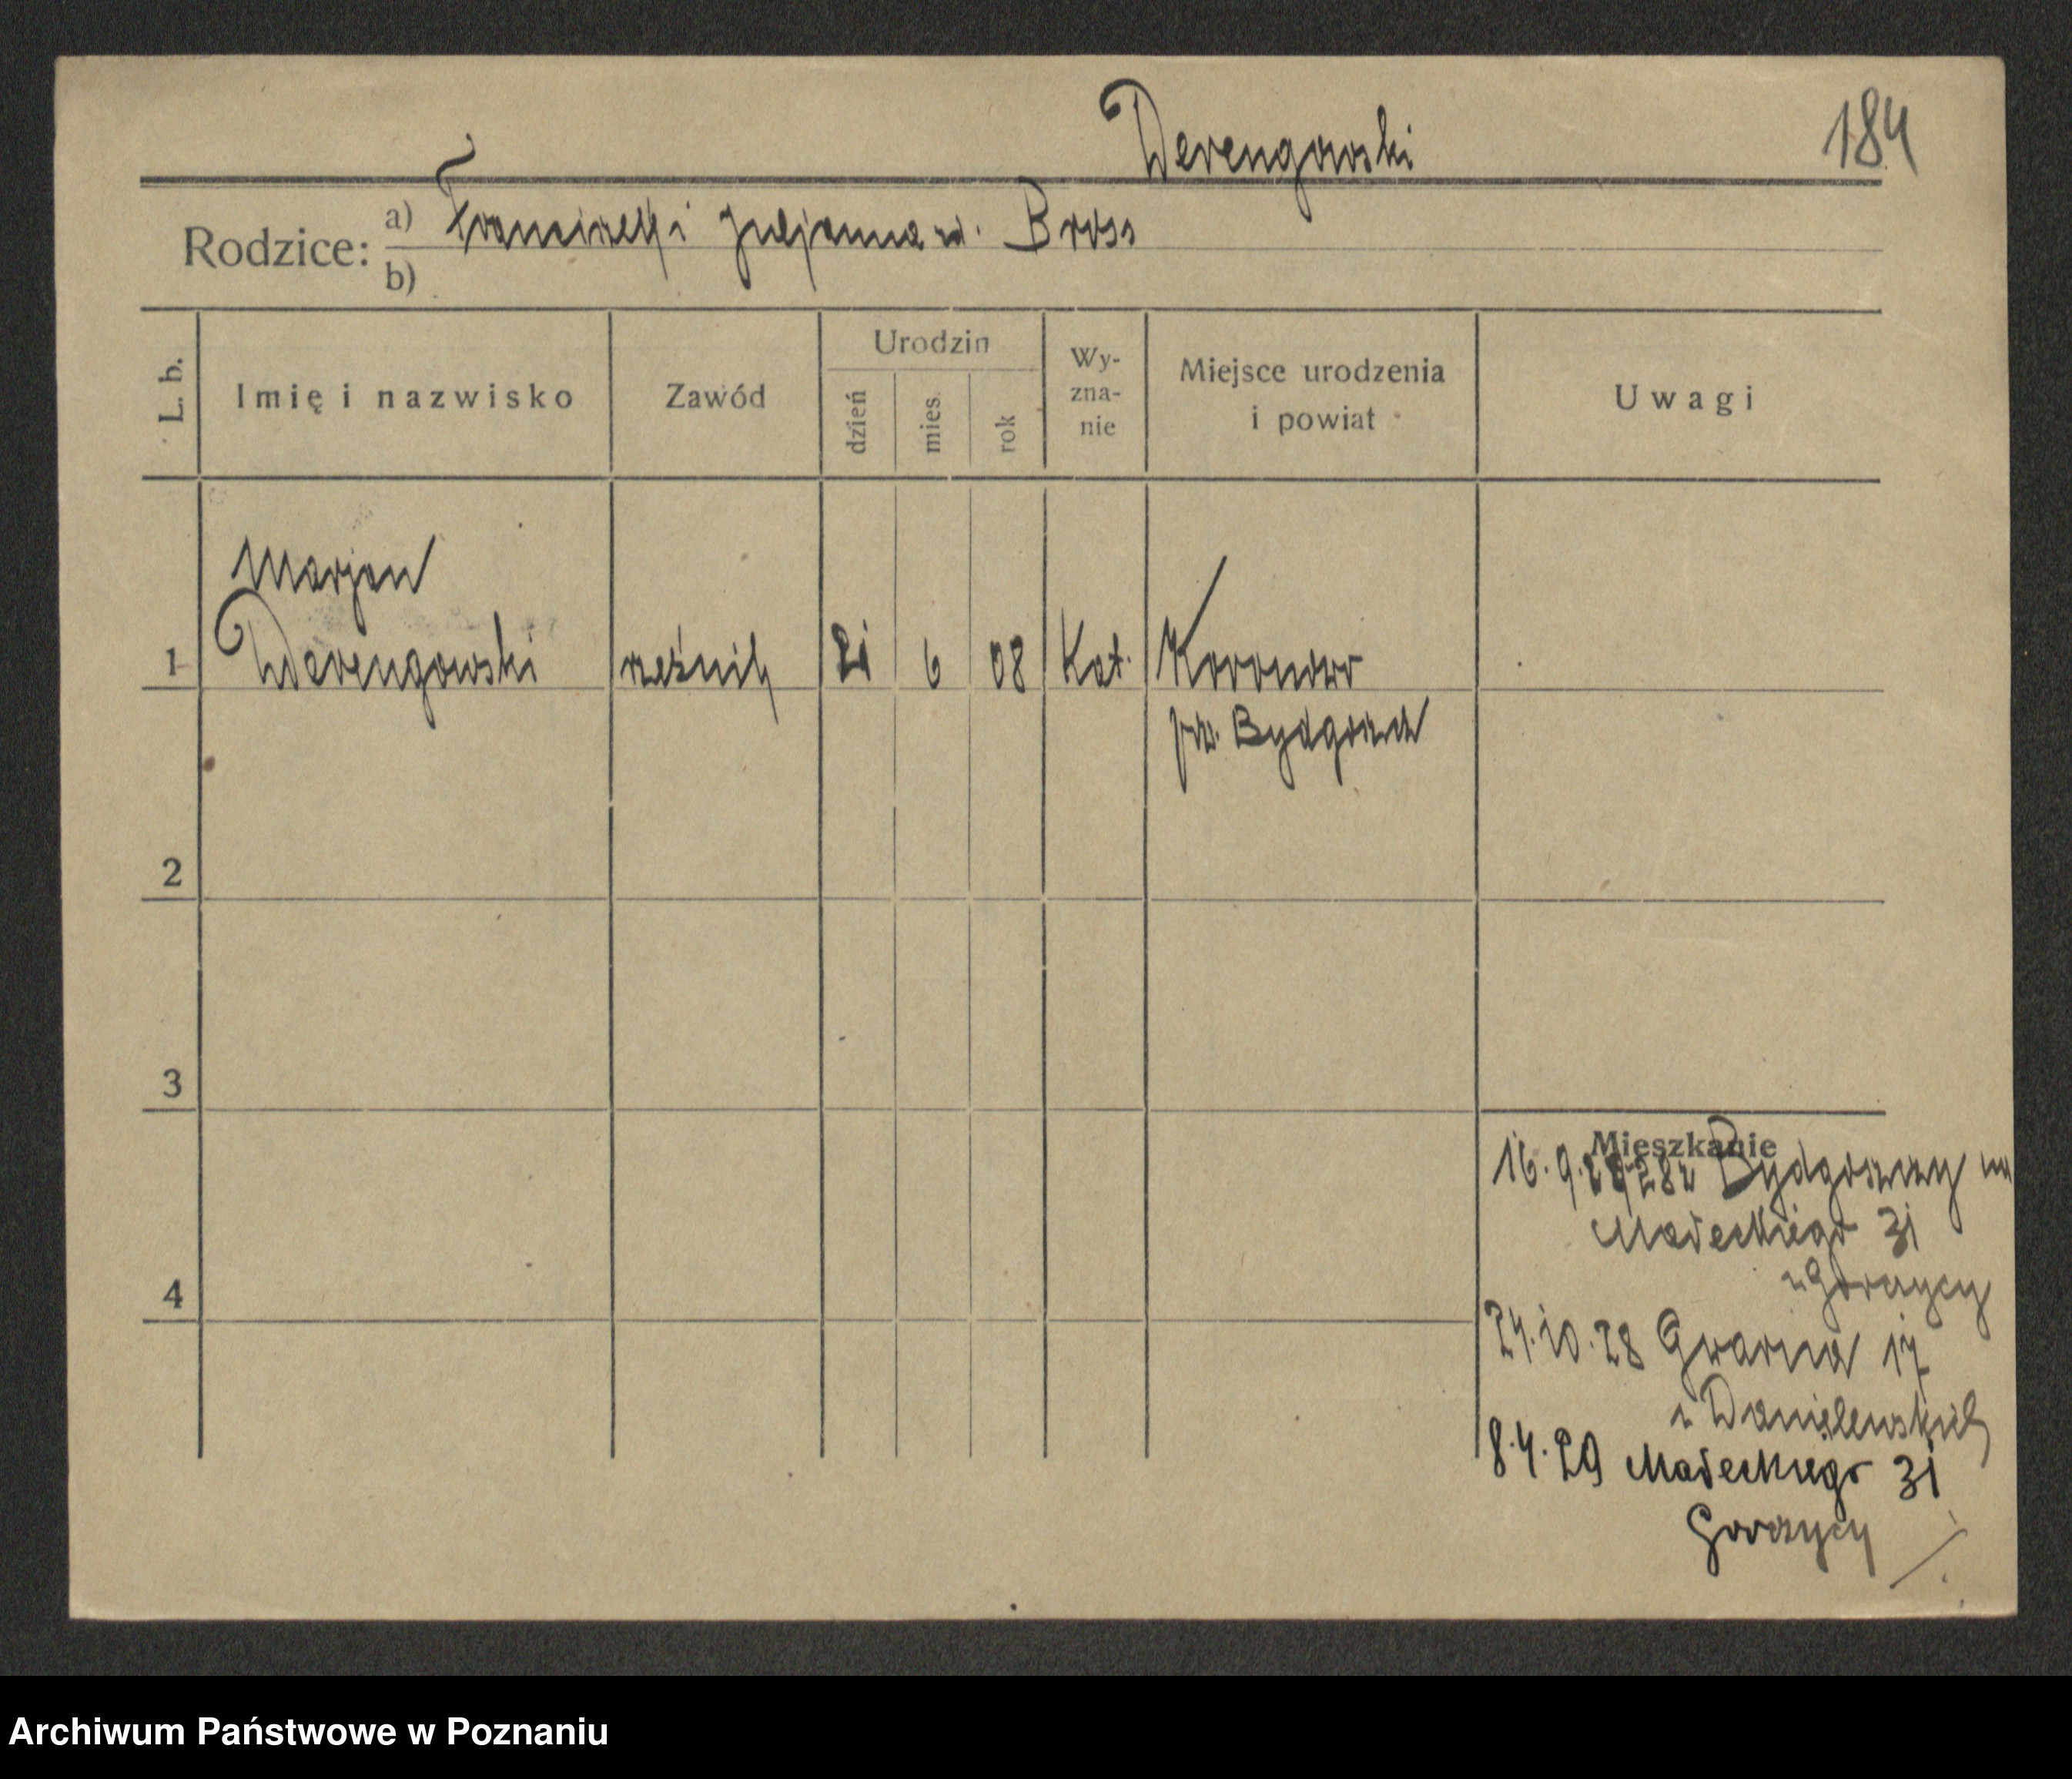 Derengowski
184
Rodzice: a) Franciszek i Juljanna d. Bross
b)
L. b. Imię i nazwisko Zawód Urodzin dzień mies. rok Wy-zna-nie Miejsce urodzenia i powiat Uwagi
Marjan
1 Derengowski rzeźnik 21 6 08 Kat. Koronowo
pw. Bydgoszcz
2
3
Mieszkanie
16.9. 28 z Bydgoszczy na
Małeckiego 31
u Gorzycy
4
24.10.28 Gwarna 17
u Danielewskich
8.4.29 Małeckiego 31
Gorzycy
Archiwum Państwowe w Poznaniu